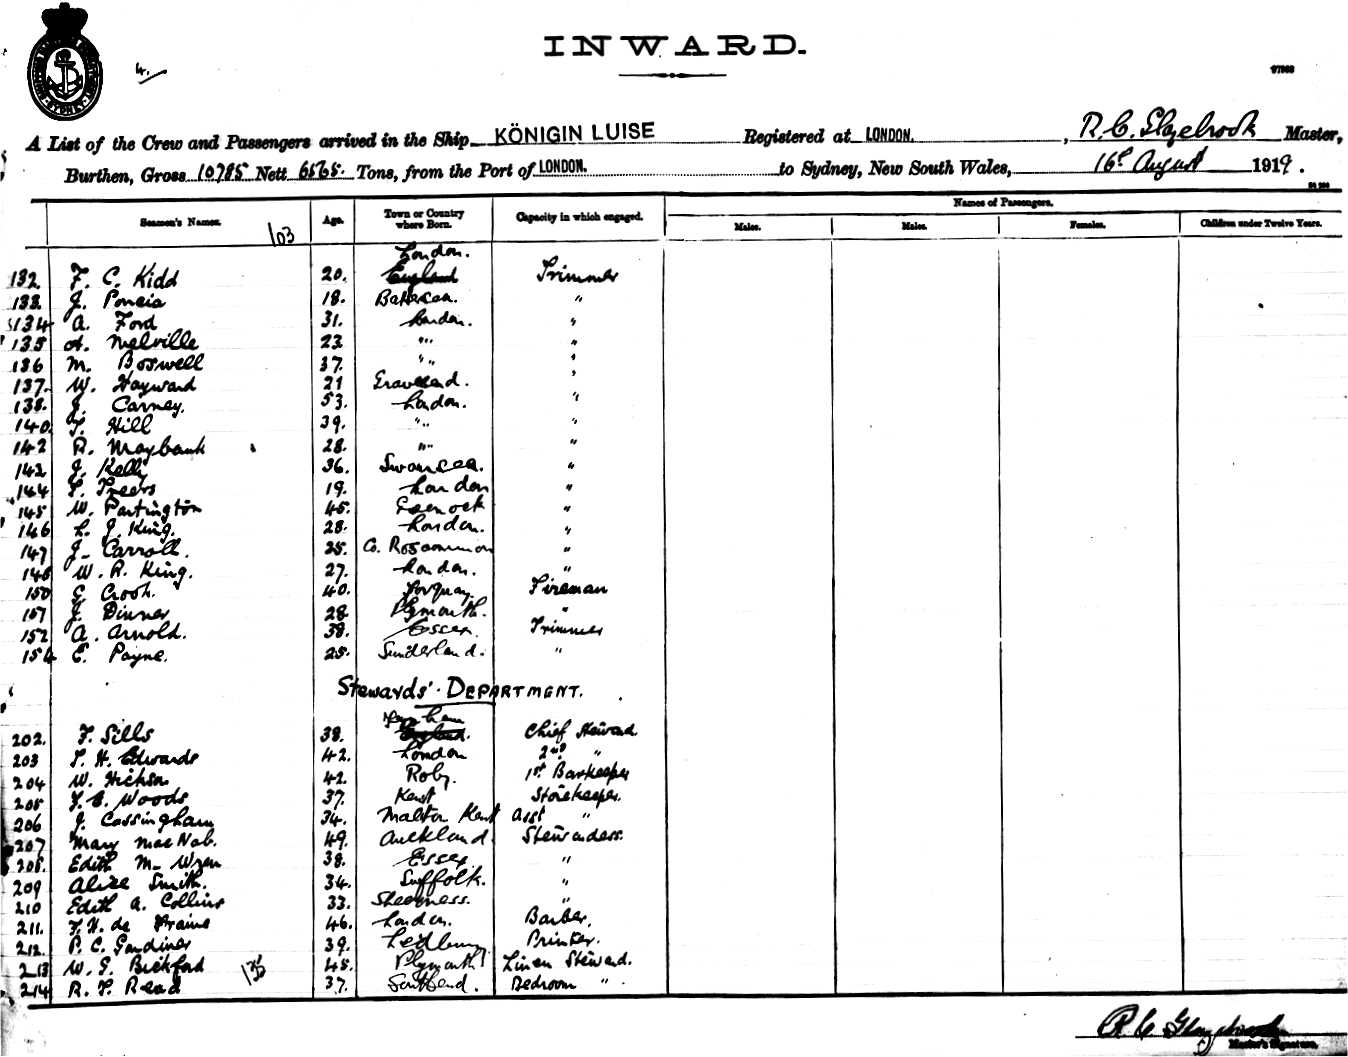 INWARD.
4.
A List of the Crew and Passengers arrived in the Ship KÖNIGIN LUISE Registered at LONDON. , R. C. Glazebrook Master,
Burthen, Gross 10785 Nett 6565. Tons, from the Port of LONDON. to Sydney, New South Wales, 16th August 1919.
Names of Passengers.
Seamen's Names. Age. Town or Country where Born. Capacity in which engaged. Males. Males. Females. Children under Twelve Years.
103
London.
132 F. C. Kidd 20. England Trimmer
133 J. Poncia 18. Battersea. "
134 A. Ford 31. London. "
135 A. Melville 23 " "
136 M. Boswell 37. " "
137. W. Hayward 21 Gravesend. "
138. J. Carney. 53. London. "
140. T. Hill 39. " "
142 R. Maybank 28. " "
143 J. Kelly 36. Swansea. "
144 19. London "
145 W. Partington 45. "
146 L. J. King. 28. London. "
147 J. Carroll. 25. Co. Roscommon "
148 W. R. King. 27. London. "
150 E. Crook. 40. Torquay. Fireman
151 J. Dinner 28 Plymouth. "
152 A. Arnold. 38. Essex. Trimmer
154 E. Payne. 25. Sunderland. "
Stewards' DEPARTMENT.
202. F. Sills 38. England. Chief Steward.
203 T. H. Edwards 42. London 2nd "
204 W. Hickson 42. Roby. 1st Barkeeper
205 F. E. Woods 37. Kent Storekeeper.
206 J. Cossingham 34. Kent Asst "
207 Mary MacNab. 49. Auckland. Stewardess.
208. Edith M. Wren 38. Essex "
209 Alice Smith. 34. Suffolk. "
210 Edith A. Collins 33. Sheerness. "
211. F. H. de Fraine 46. London. Barber.
212. P. C. Gardiner 39. Ledbury Printer.
213 W. G. Bickford 45. Plymouth Linen Steward.
214 R. T. Read 37. Southend. Bedroom "
R. C. Glazebrook
Master's Signature.